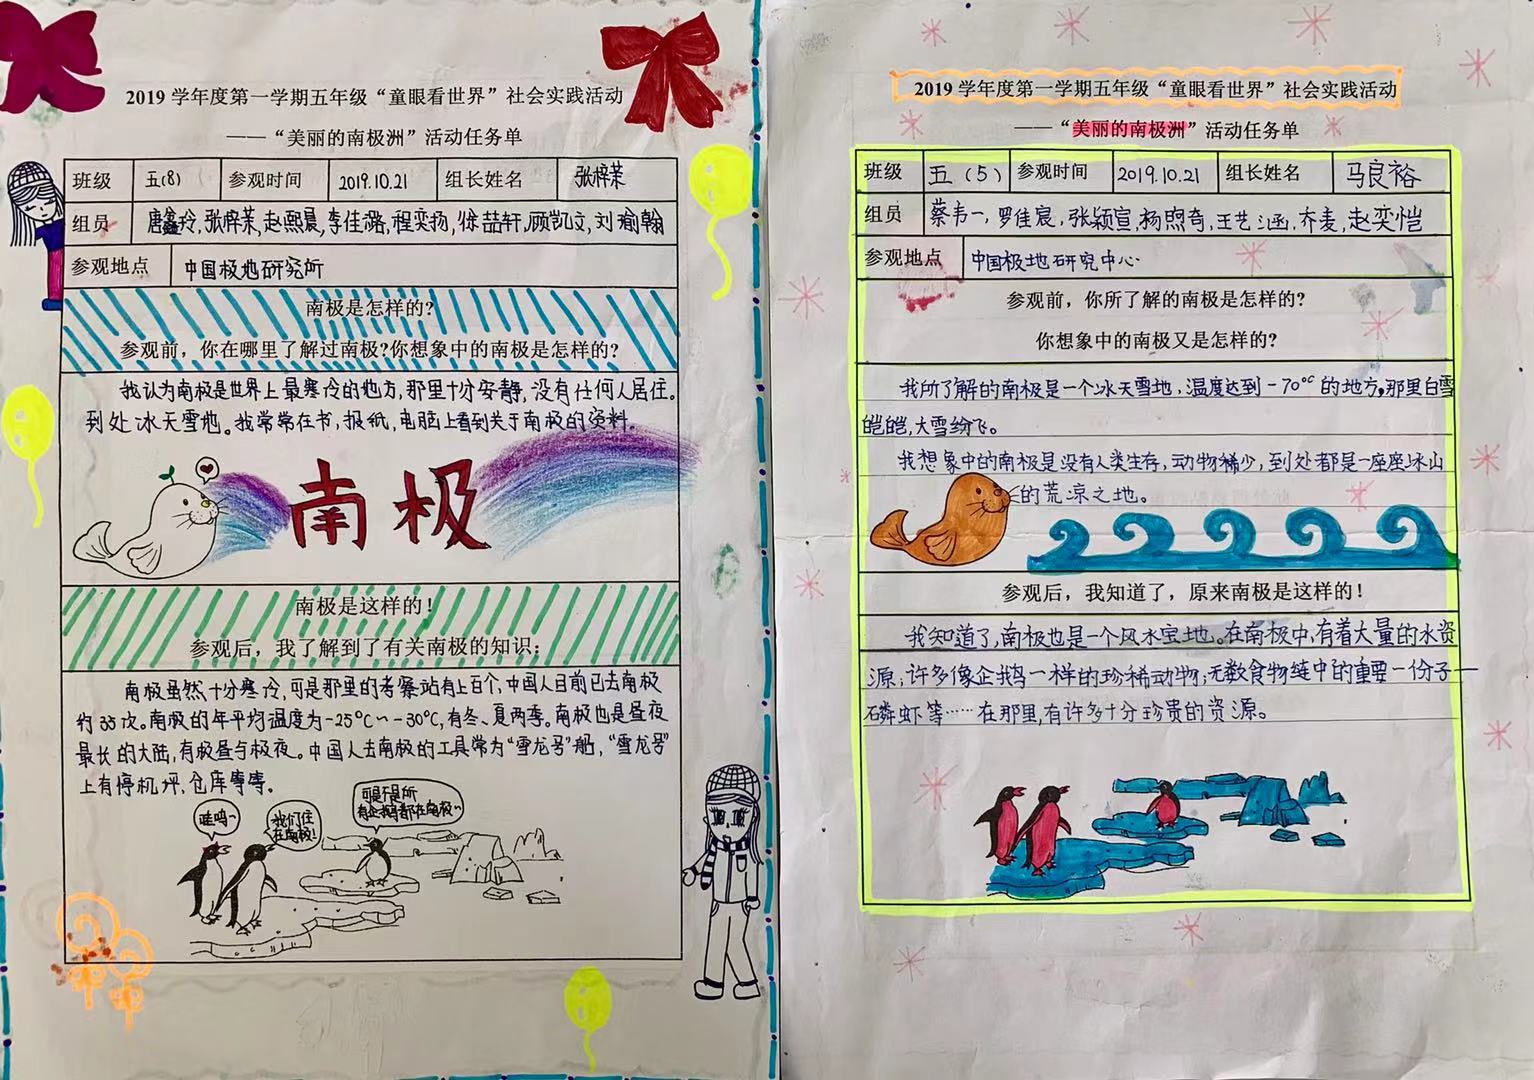 2019 学年度第一学期五年级“童眼看世界”社会实践活动
——“美丽的南极洲”活动任务单
班级 五(8) 参观时间 2019.10.21 组长姓名 张梓茉
组员 唐鑫玲,张梓茉,赵熙晨,李佳璐,程奕扬,徐喆轩,顾凯文,刘瑜翰
参观地点 中国极地研究所
南极是怎样的?
参观前，你在哪里了解过南极?你想象中的南极是怎样的?
我认为南极是世界上最寒冷的地方,那里十分安静,没有任何人居住。
到处冰天雪地。我常常在书,报纸,电脑上看到关于南极的资料.
南极
南极是这样的!
参观后，我了解到了有关南极的知识:
南极虽然十分寒冷,可是那里的考察站有上百个,中国人目前已去南极
约35次。南极的年平均温度为-25°C~-30°C,有冬、夏两季。南极也是昼夜
最长的大陆,有极昼与极夜。中国人去南极的工具常为“雪龙号”船，“雪龙号”
上有停机坪,仓库等等。
哇呜~
我们住
在南极!
可是不是所
有企鹅都在南极~
2019 学年度第一学期五年级“童眼看世界”社会实践活动
——“美丽的南极洲”活动任务单
班级 五（5） 参观时间 2019.10.21 组长姓名 马良裕
组员 蔡韦一,罗佳宸,张颖宣,杨照奇,王艺涵,乔麦,赵奕恺
参观地点 中国极地研究中心
参观前，你所了解的南极是怎样的?
你想象中的南极又是怎样的?
我所了解的南极是一个冰天雪地,温度达到-70°C的地方,那里白雪
皑皑,大雪纷飞。
我想象中的南极是没有人类生存,动物稀少,到处都是一座座冰山
的荒凉之地。
参观后，我知道了，原来南极是这样的!
我知道了,南极也是一个风水宝地。在南极中,有着大量的水资
源,许多像企鹅一样的珍稀动物,无数食物链中的重要一份子——
磷虾等……在那里,有许多十分珍贵的资源。